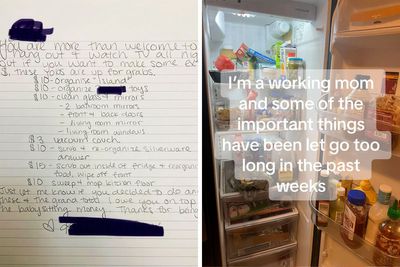 You are more than welcome to
hang out & watch TV all nig
but if you want to make some ex
$, these jobs are up for grabs.
$10 - organize "Island"
$10 - organize toys
$10 - clean glass & mirrors
- 2 bathroom mirrors
- front & back doors
- living room mirror
- living room windows
$3 vacuum couch
$10 - scrub & re-organize silverware
drawer
$15 - scrub out inside of fridge & reorganiz
food, wipe off front
$10 sweep & mop kitchen floor
Just let me know if you decided to do an
these & the grand total I owe you on top
the babysitting money. Thanks for being
I'm a working mom
and some of the
important things
have been let go too
long in the past
weeks